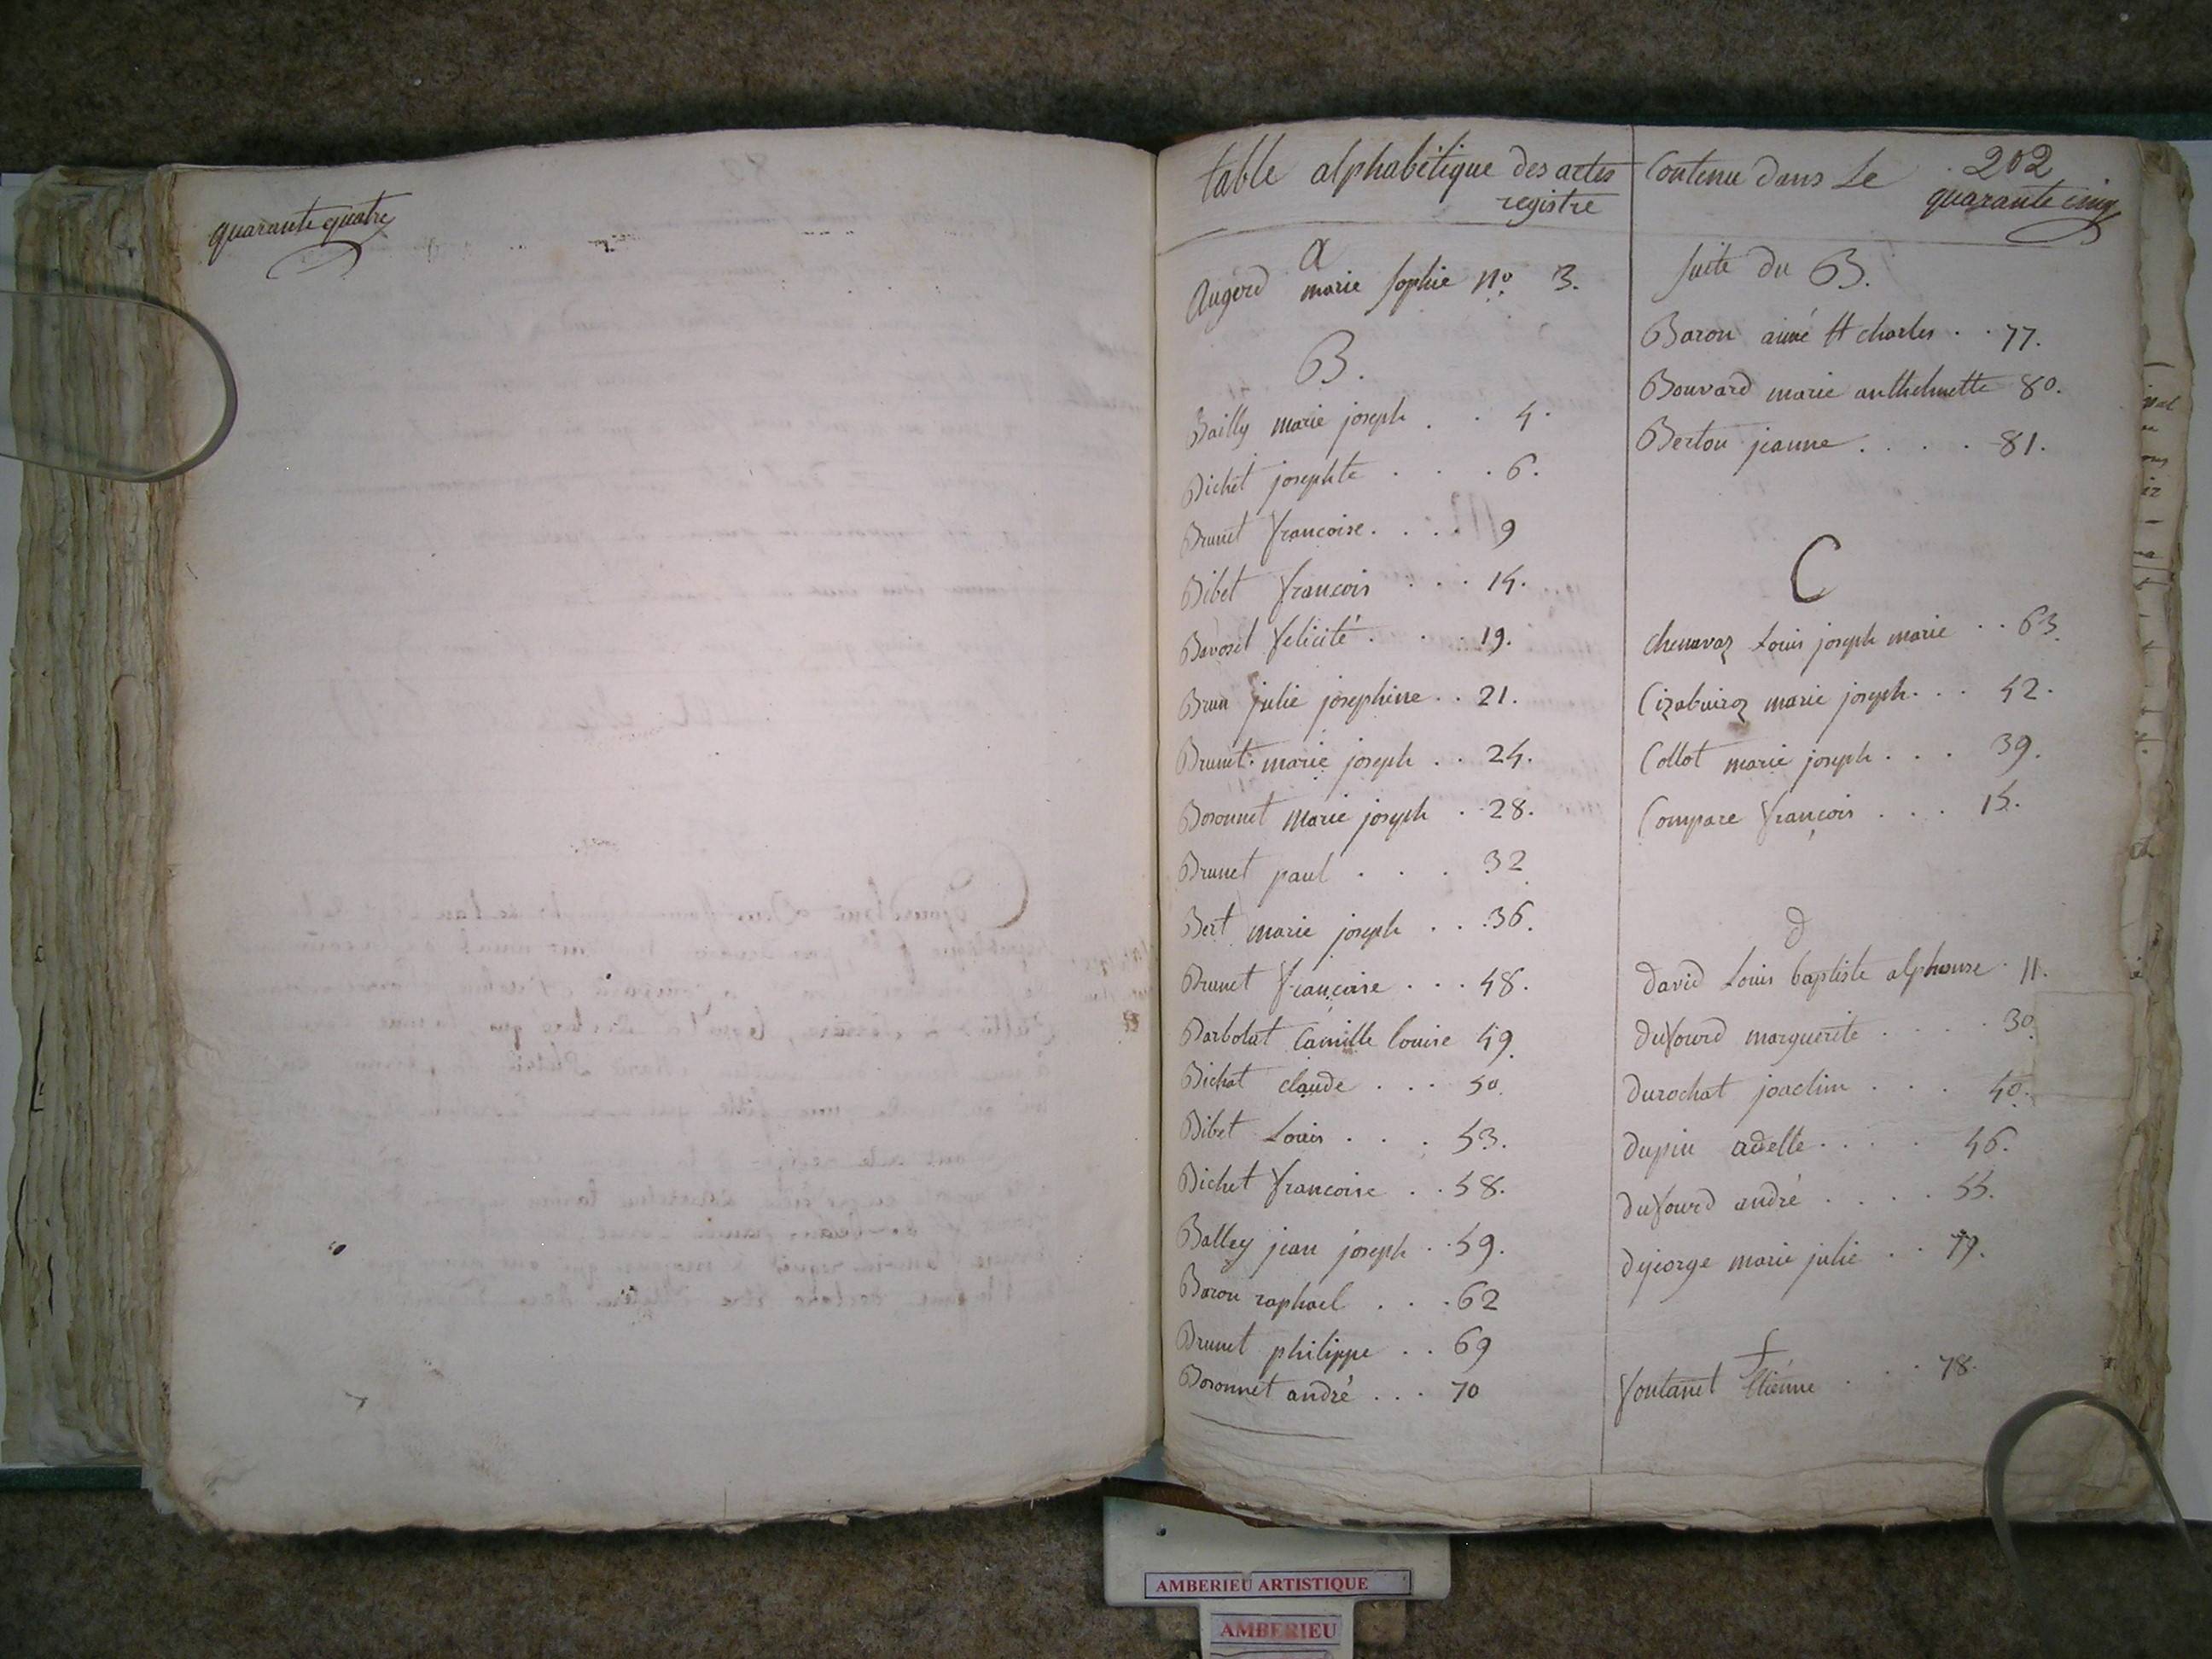 quarante quatre
table alphabétique des actes
registre
a
Augerd marie Sophie No. 3.
B.
Bailly marie joseph . . 4.
Bichet josephte . . . 6.
Brunet francoise. . . . 9
Bibet françois . . . 14.
Bavosel felicité . . . 19.
Brun julie josephine . . 21.
Brunet marie joseph . . 24.
Boronnet Marie joseph . . 28.
Brunet paul . . . 32
Bert marie joseph . . . 36.
Brunet françoise . . . 48.
Barbolat Camille louise 49.
Bichat claude . . . 50.
Bibet Louis . . . 53.
Bichet francoise . . 58.
Balley jean joseph . . 59.
Baron raphael . . . 62
Brunet philippe . . 69
Boronnet andré . . . 70
Contenu dans Le
202
quarante cinq
Suite du B.
Baron aimé charles . . 77.
Bouvard marie anthelmette 80.
Berton jeanne . . . . 81.
C
Chenavaz Louis joseph marie . . 63.
Cizabuiroz marie joseph . . . 42.
Collot marie joseph . . . 39.
Compare françois . . . 15.
d
david Louis baptiste alphonse . 11.
dufourd marguerite . . . . 30.
durochat joachim . . . 40.
dupin adelle . . . . 46.
dufourd andré . . . . 55.
dejeorge marie julie . . 79.
f
fontanet Etienne . . . 78.
AMBERIEU ARTISTIQUE
AMBERIEU